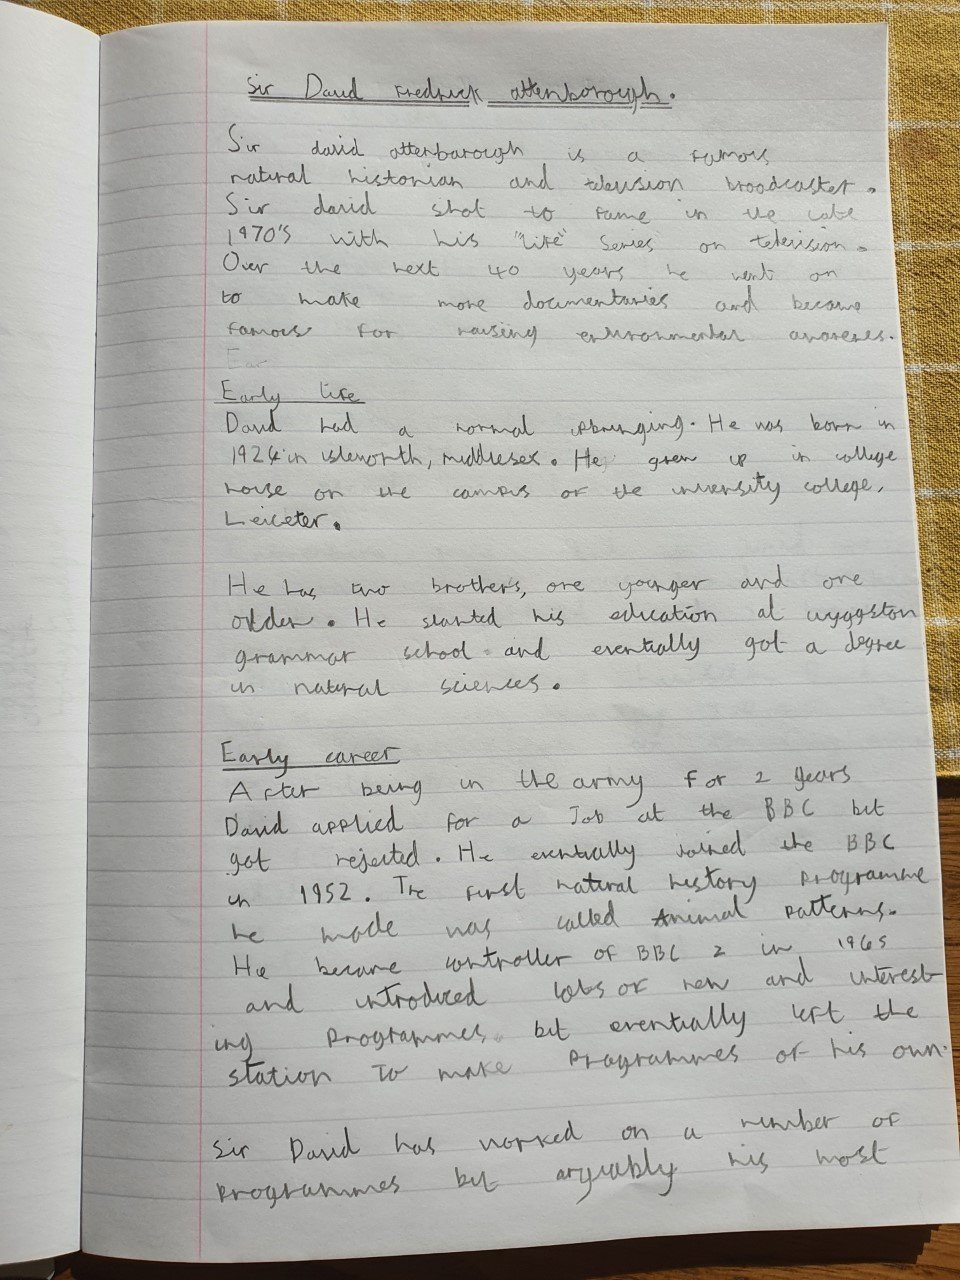 Sir David Fredrick attenborough.
Sir david attenbarough is a famous
natural historian and television broadcaster.
Sir david shot to fame in the late
1970's with his "life" Series on television.
Over the next 40 years he went on
to make more documentaries and became
famous for raising environmental awarenes.
Ear
Early life
David had a normal upbringing. He was born in
1926 in isleworth, middlesex. He grew up in college
house on the campus of the university college,
Leiceter.
He has two brothers, one younger and one
older. He started his education at wyggston
grammar school and eventually got a degree
in natural sciences.
Early career
After being in the army for 2 years
David applied for a Job at the BBC but
got rejected. He eventually joined the BBC
in 1952. The first natural history programme
he made was called Animal patterns.
He became controller of BBC 2 in 1965
and introduced lots of new and interest-
ing programmes but eventually left the
station To make Programmes of his own.
Sir David has worked on a number of
programmes but arguably his most